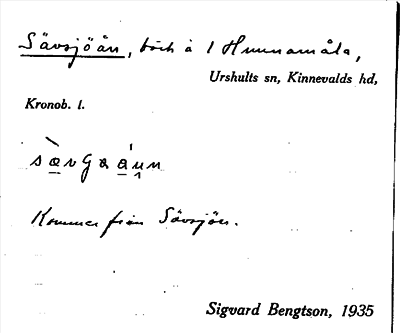 Sävsjöån, bäck å 1 Hunnamåla,
Urshults sn, Kinnevalds hd,
Kronob. l.
Kommer från Sävsjön.
Sigvard Bengtson, 1935